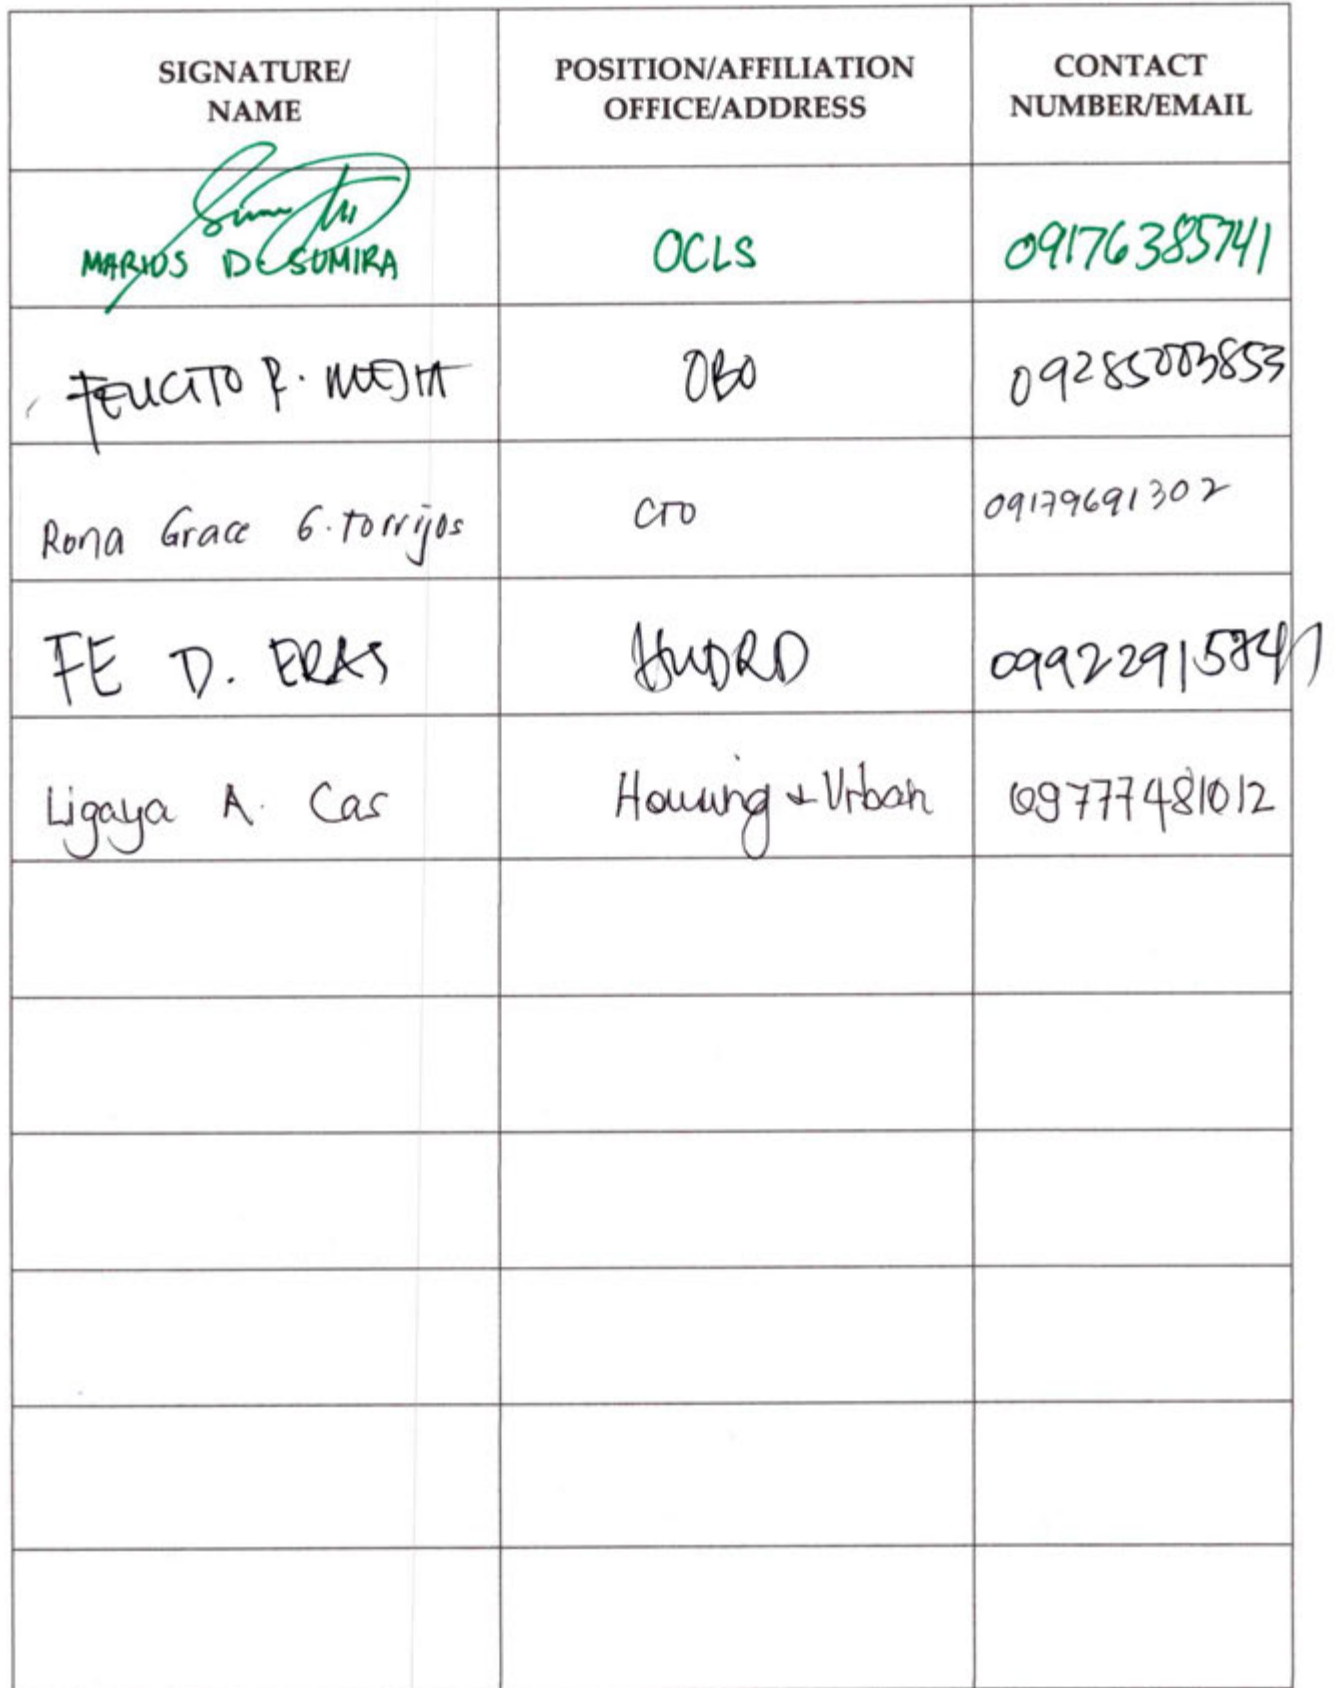 SIGNATURE/ POSITION/AFFILIATION CONTACT
NAME OFFICE/ADDRESS NUMBER/EMAIL
MARIOS D. SUMIRA OCLS 09176385741
FELICITO P. MEJIA OBO 09285003853
Rona Grace G. Torrijos CTO 09179691302
FE D. ERAS HUDRD
Ligaya A. Cas Housing & Urban 09777481012